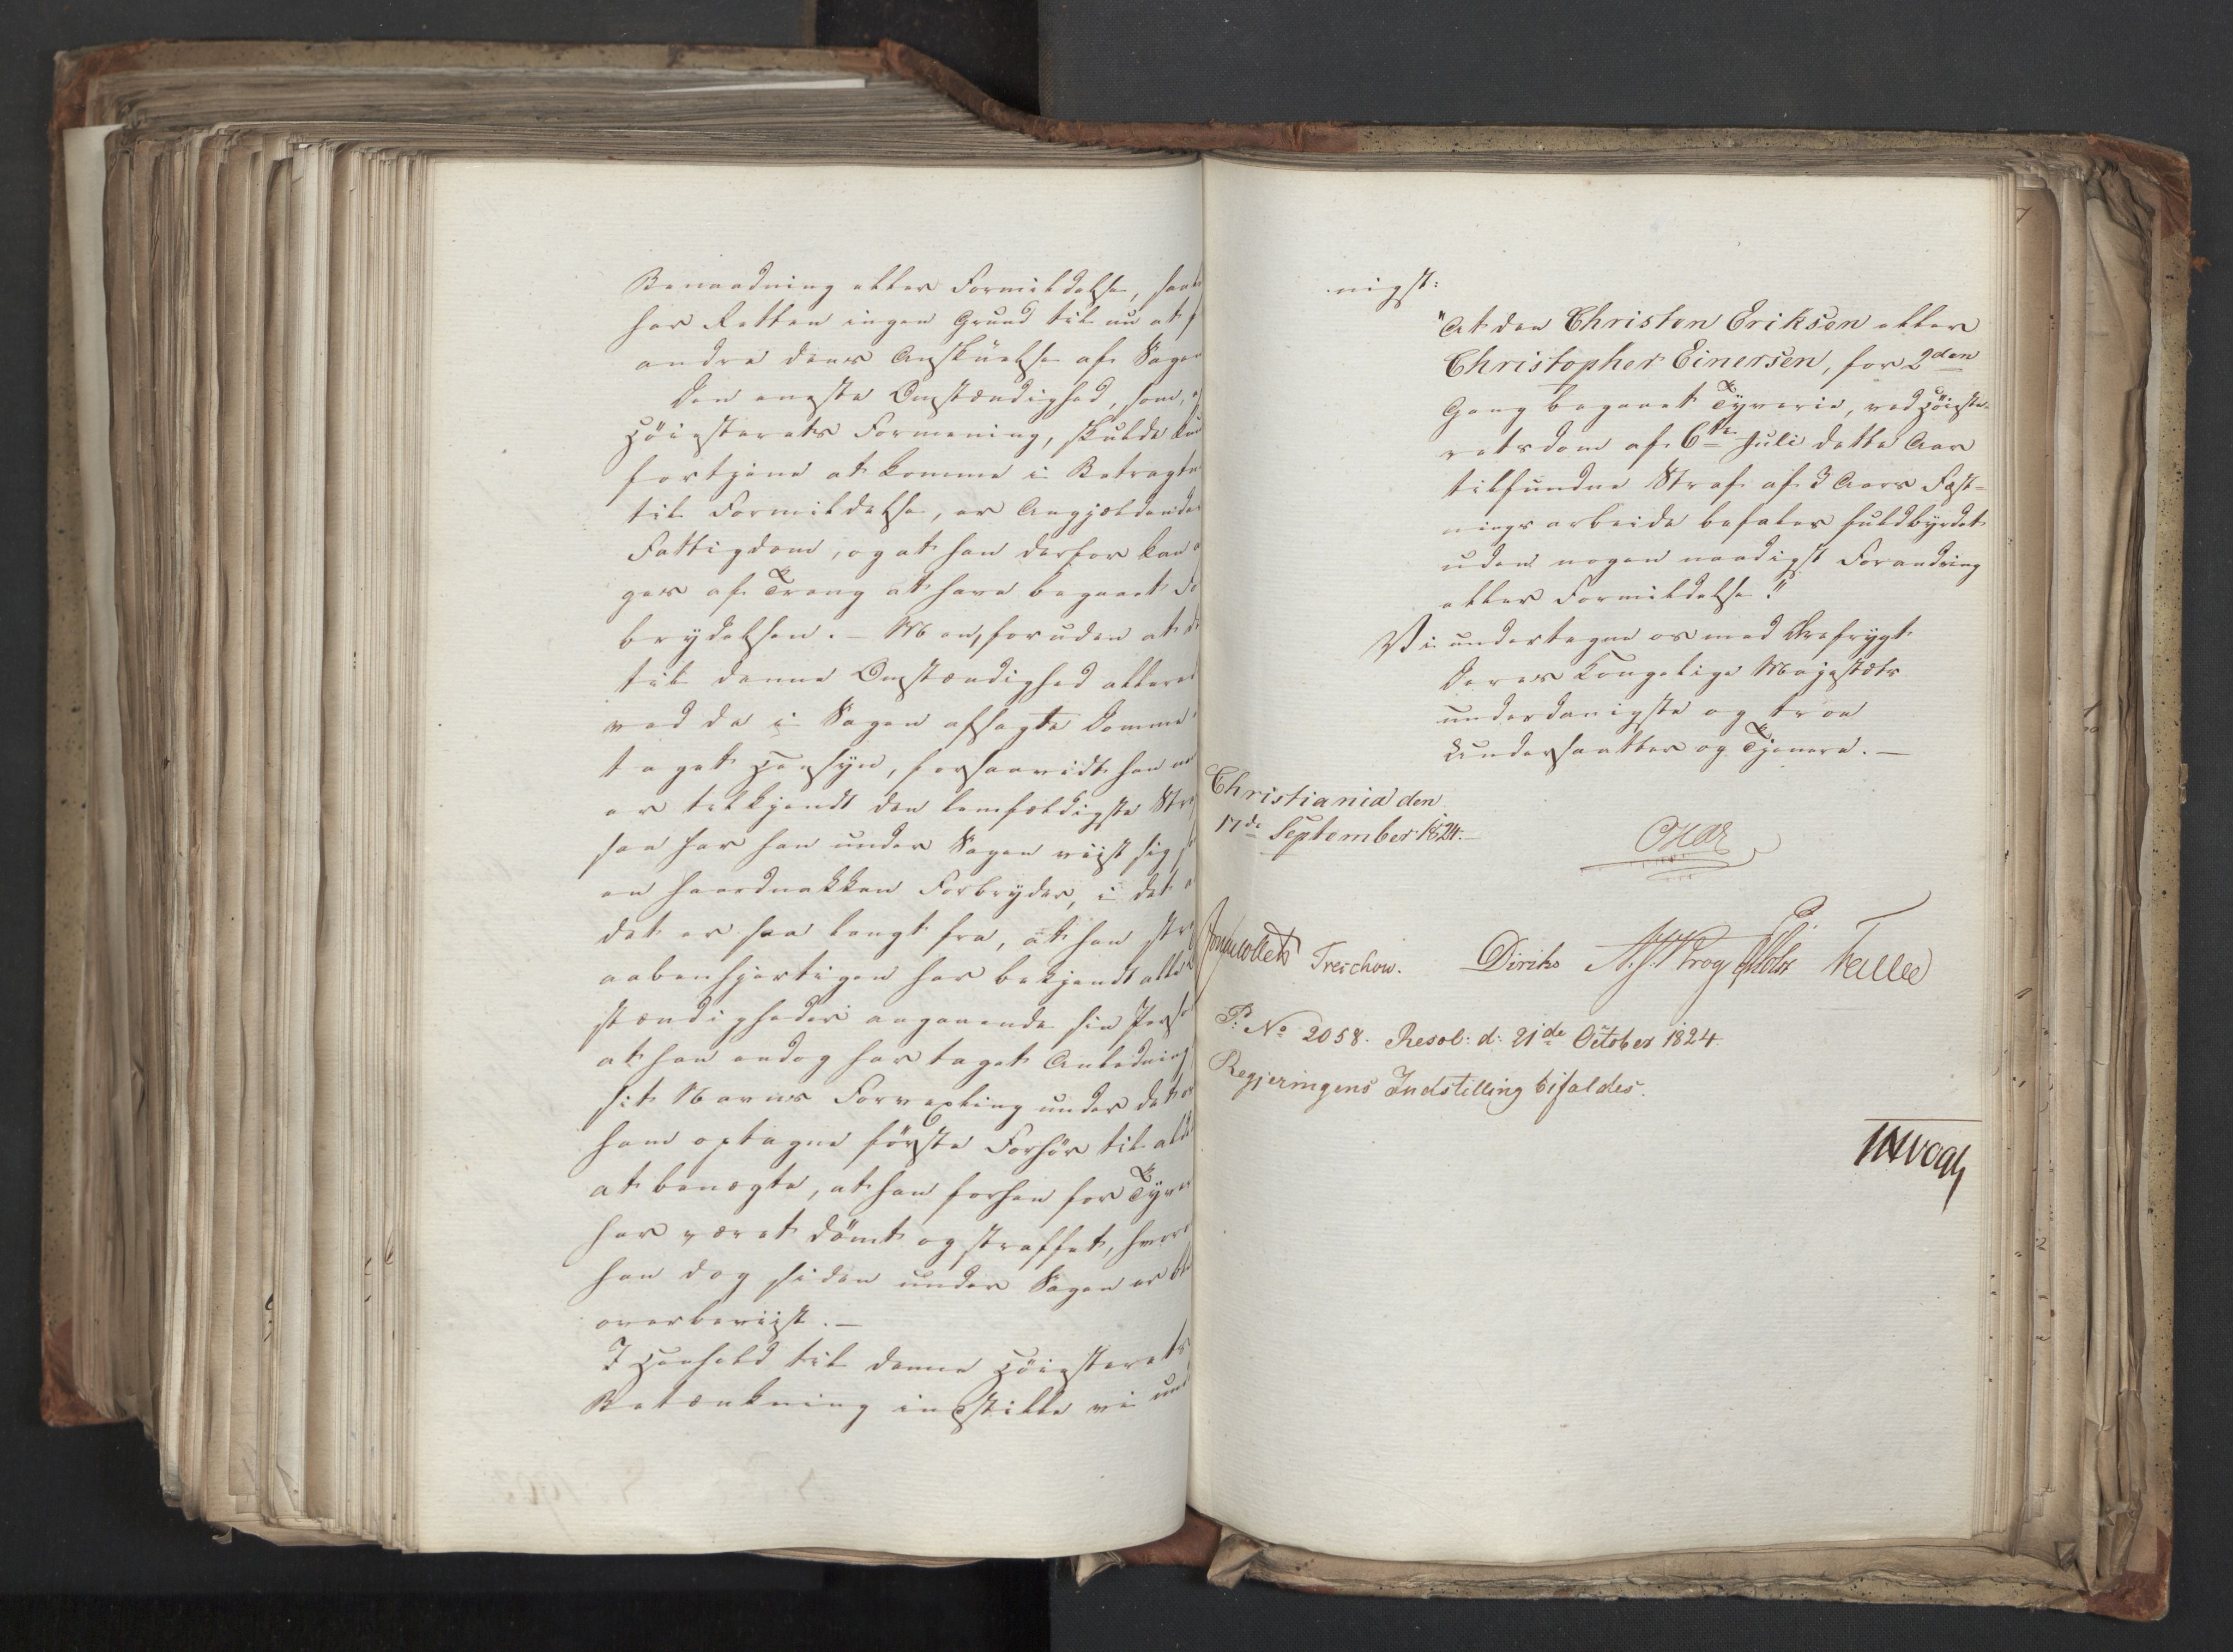 Benaadning eller Formildelse, saa
har Retten ingen Grund til nu at
andre dens Anskuelse af Sagen
Den eneste Omstændighed, som,
Höiesterets Formening, skulde kun
fortjene at komme i Betragtn
til Formildelse, er Angjældendes
Fattigdom, og at han derfor kan
ges af Trang at have begaaet Fo
brydelsen. - Men, foruden at d
til denne Omstændighed allered
ved de i Sagen afsagte Domme
taget Hensyn, forsaavidt han
er tilkjendt den lemfældigste Str
saa har han under Sagen viist sig s
en haardnakken Forbryder, i det
det er saa langt fra, at han str
aabenhjertigen har bekjendt alle
stændigheder angaaende sin Person
at han endog har taget Anledning
sit Navns Forvexling under det
ham optagne förste Forhör til alde
at benægte, at han forhen for Tyve
har været dömt og straffet, hvor
han dog siden under Sagen er ble
overbeviist. -
I Henhold til denne Höiesterets
Betænkning indstille vi und
nigst:
"At den Christen Eriksen eller
Christopher Einersen, for 2den
Gang begaaet Tyverie, ved Höieste-
retsdom af 6te Juli dette Aar
tilfundne Straf af 3 Aars Fæst-
ningsarbeide befales fuldbyrdet
uden nogen naadigst Forandring
eller Formildelse."
Vi undertegne os med Ærefrygt
Deres Kongelige Majestæts
underdanigste og troe
Undersaatter og Tjenere. -
Christiania den
17de September 1824. -
Jonas Collett Treschow. Diriks Krog Fasting
P: No 2058. Resol: d: 21de October 1824.
Regjeringens Indstilling bifaldes.